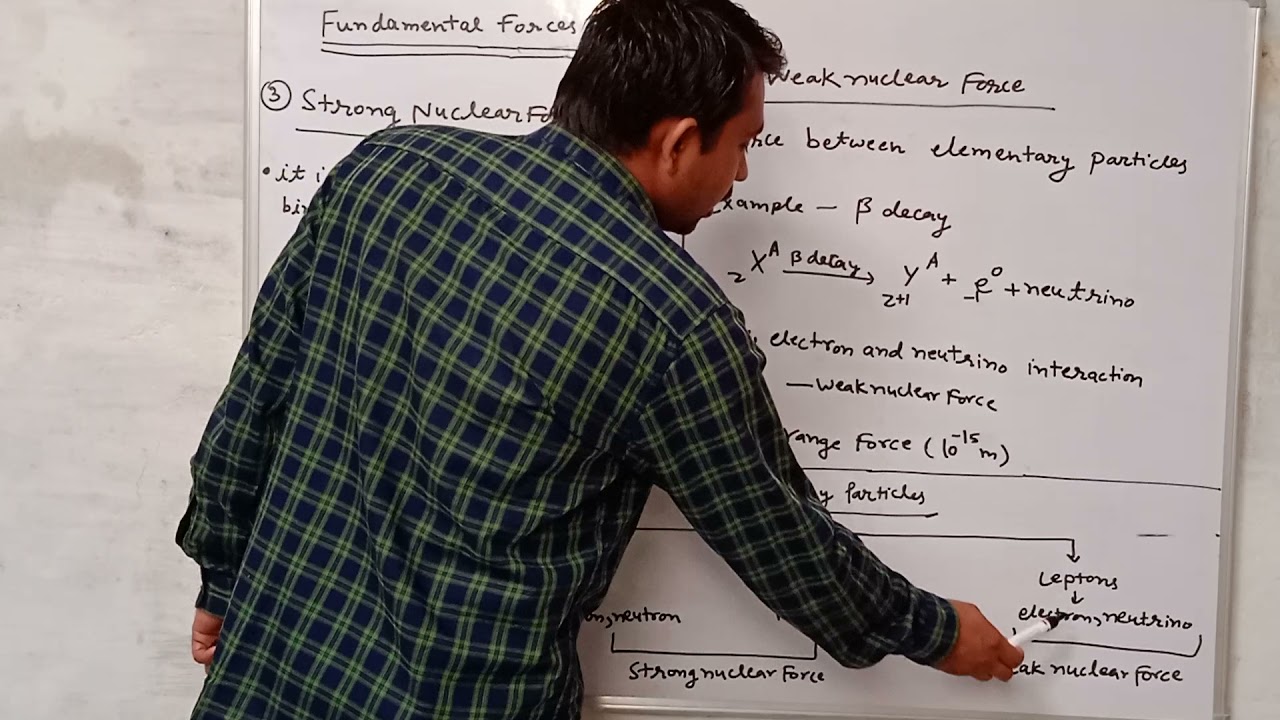 Fundamental Forces
③ Strong Nuclear Fo
• it i
bi
Weak nuclear Force
between elementary particles
Example — β decay
zXᴬ β decay → z+1Yᴬ + -1e⁰ + neutrino
electron and neutrino interaction
— Weak nuclear Force
range Force (10⁻¹⁵ m)
particles
Leptons
neutron
electron, neutrino
Strong nuclear Force
weak nuclear Force